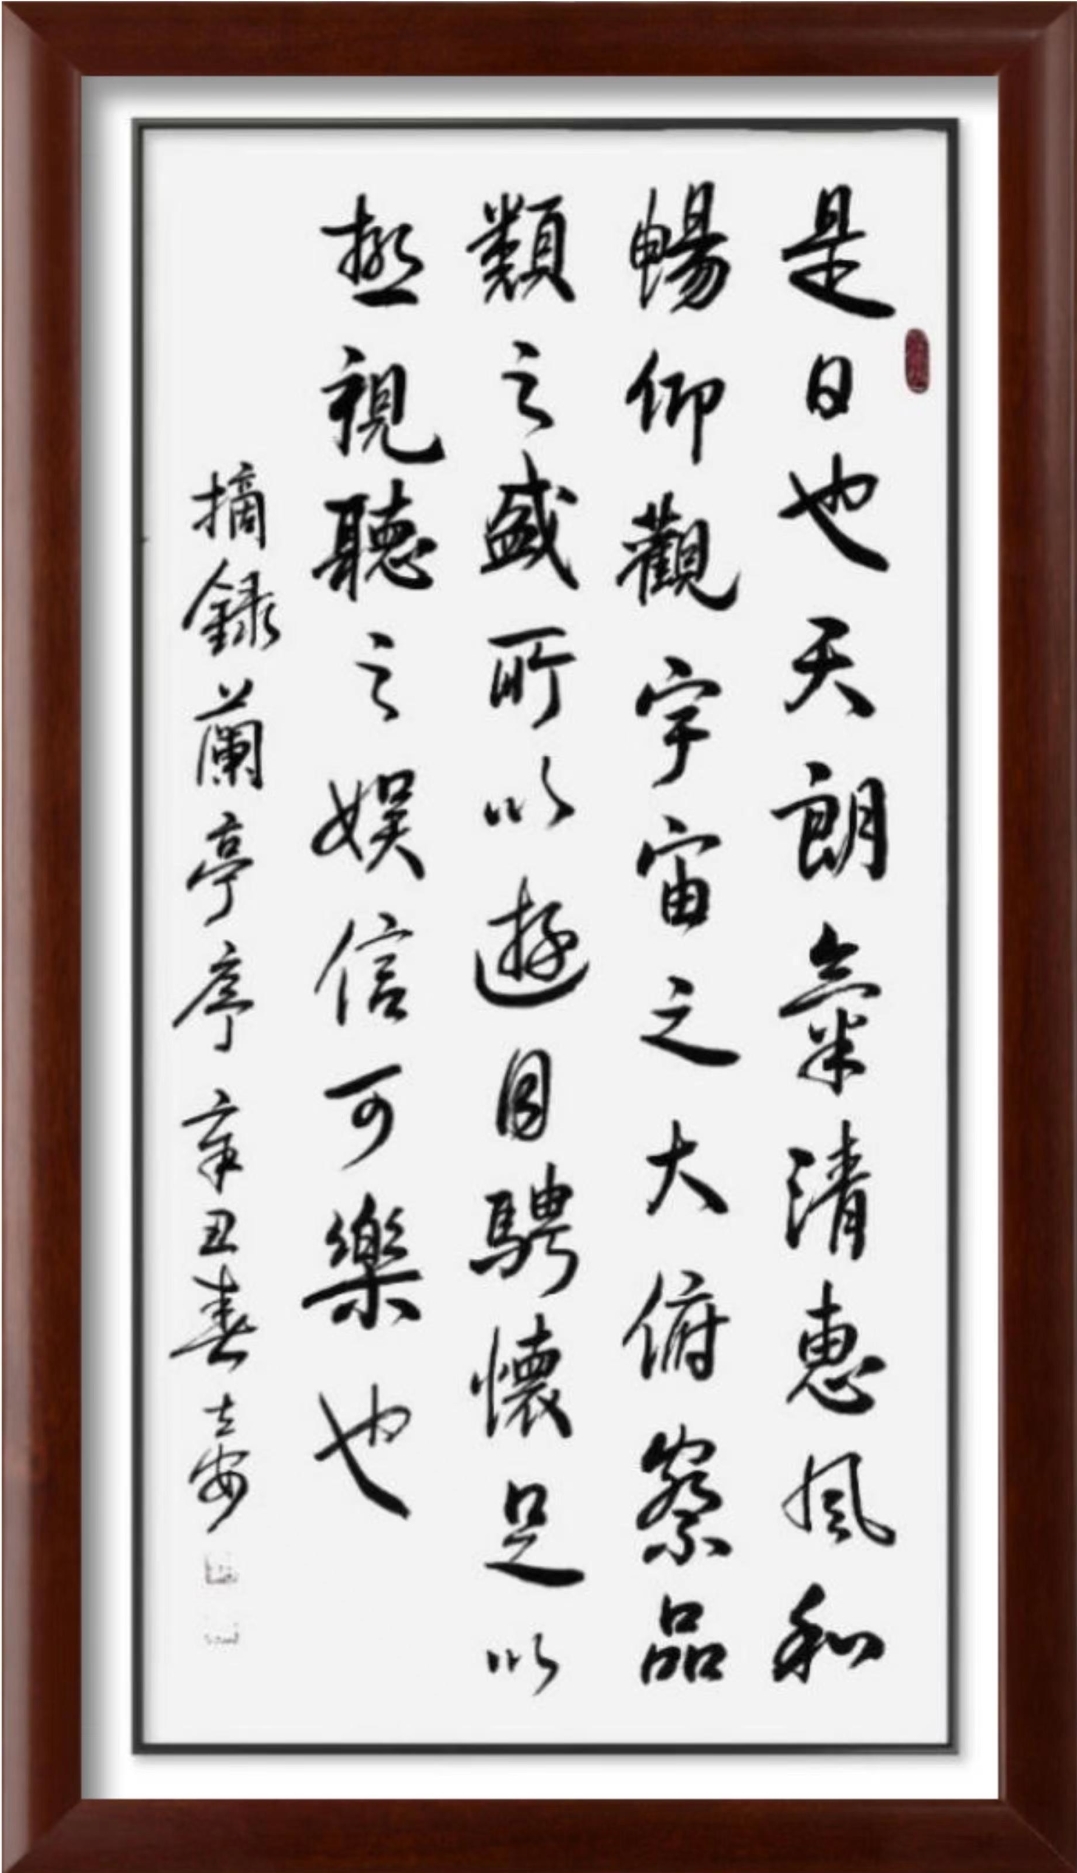 是日也天朗氣清惠風和
暢仰觀宇宙之大俯察品
類之盛所以遊目騁懷足以
極視聽之娛信可樂也
摘録蘭亭序辛丑春